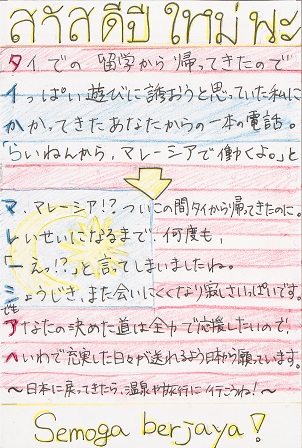 สวัสดีปี ใหม่ พะ
タイでの留学から帰ってきたので
いっぱい遊びに誘おうと思っていた私に
かかってきたあなたからの一本の電話。
「らいねんから、マレーシアで働くよ。」と
マ、マレーシア!?ついこの間タイから帰ってきたのに。
レいせいになるまで、何度も、
「ーえっ!?」と言ってしまいましたね。
ショうじき、また会いにくくなり寂しさいっぱいです。
でも
アなたの決めた道は全力で応援したいので、
へいわで充実した日々が送れるよう日本から願っています。
～日本に戻ってきたら、温泉や旅行に行こうね!～
Semoga berjaya!